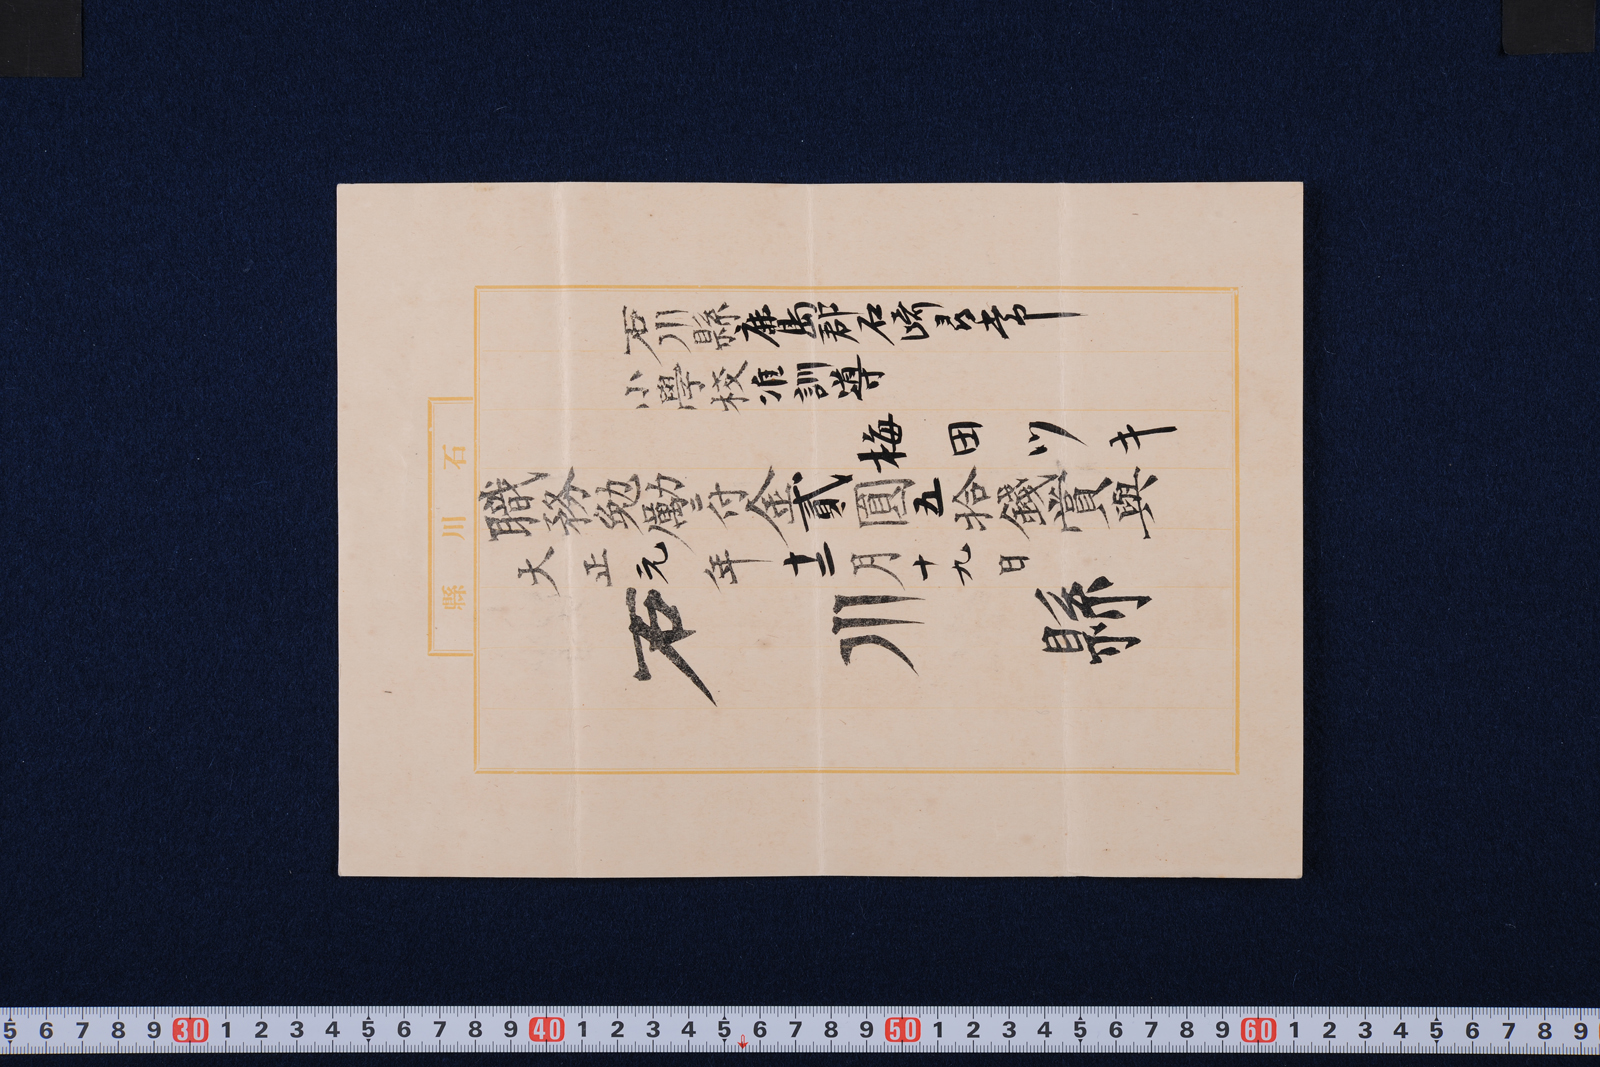 石川縣鹿島郡石崎尋常
小學校准訓導
梅田ツキ
職務勉勵ニ付金貳圓五拾錢賞與
大正元年十二月十九日
石川縣
石川縣
5 6 7 8 9 30 1 2 3 4 5 6 7 8 9 40 1 2 3 4 5 6 7 8 9 50 1 2 3 4 5 6 7 8 9 60 1 2 3 4 5 6 7 8 9